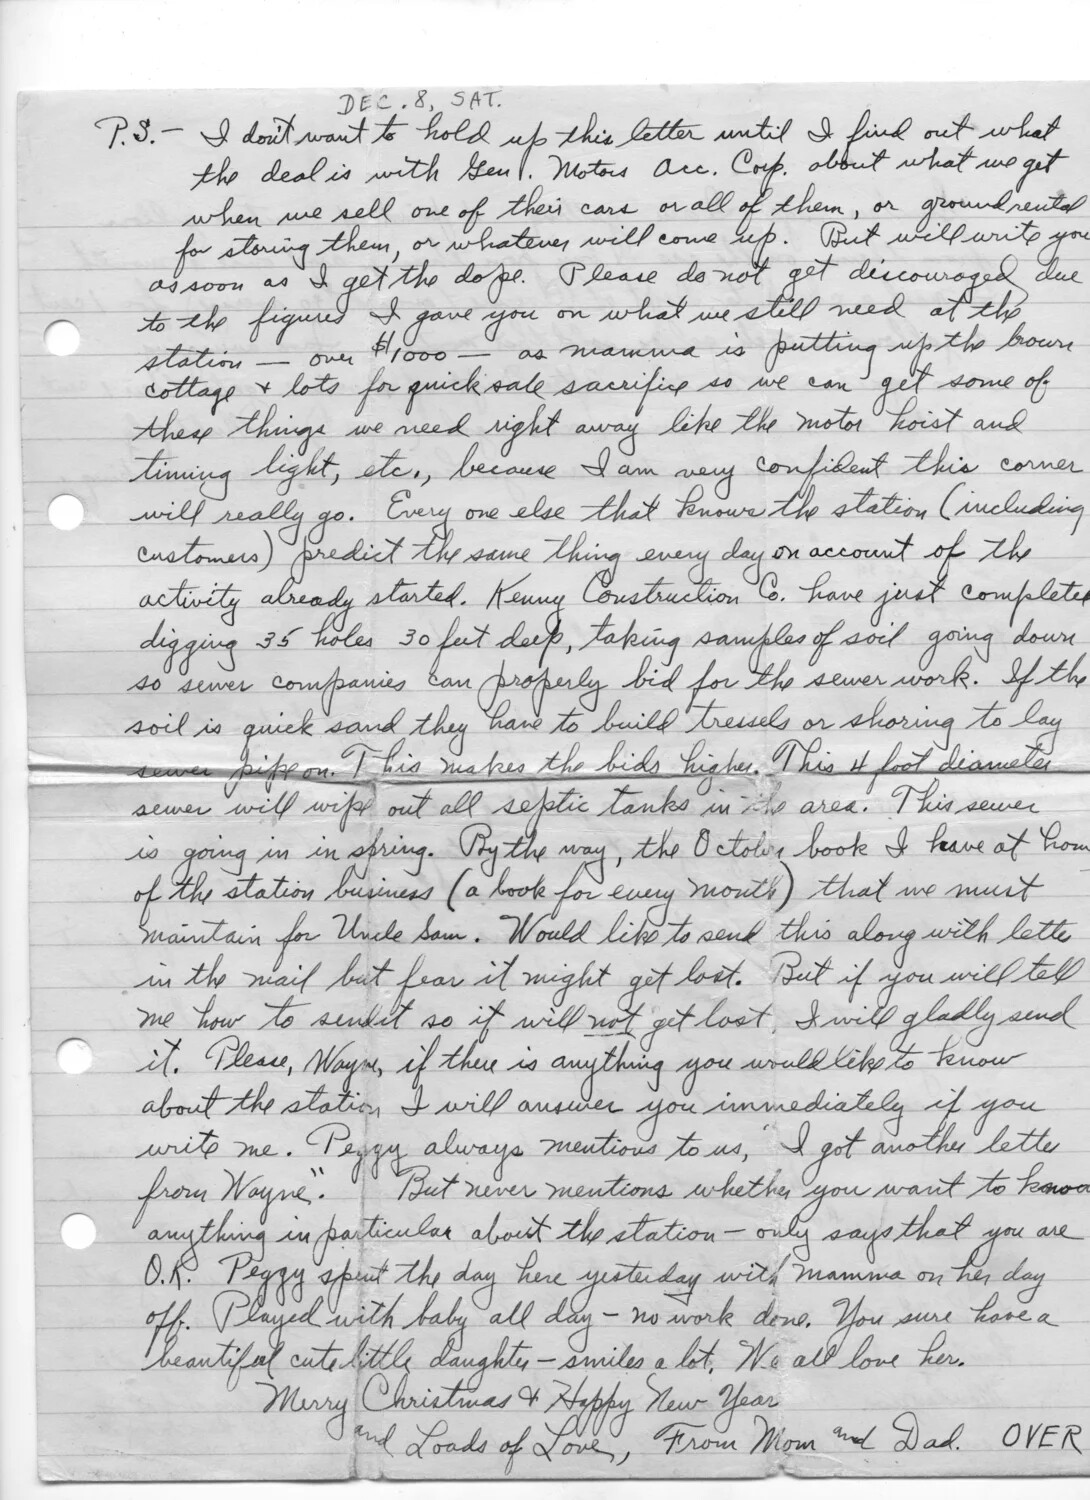 DEC. 8, SAT.
P.S.— I don't want to hold up this letter until I find out what
the deal is with Gen'l. Motors Acc. Corp. about what we get
when we sell one of their cars or all of them, or ground rental
for storing them, or whatever will come up. But will write you
as soon as I get the dope. Please do not get discouraged due
to the figures I gave you on what we still need at the
station — over $1000 — as mamma is putting up the brown
cottage & lots for quick sale sacrifice so we can get some of
these things we need right away like the motor hoist and
timing light, etc., because I am very confident this corner
will really go. Every one else that knows the station (including
customers) predict the same thing every day on account of the
activity already started. Kenny Construction Co. have just completed
digging 35 holes 30 feet deep, taking samples of soil going down
so sewer companies can properly bid for the sewer work. If the
soil is quick sand they have to build tressels or shoring to lay
sewer pipe on. This makes the bids higher. This 4 foot diameter
sewer will wipe out all septic tanks in the area. This sewer
is going in in spring. By the way, the October book I have at hom
of the station business (a book for every month) that we must
maintain for Uncle Sam. Would like to send this along with letter
in the mail but fear it might get lost. But if you will tell
me how to send it so it will not get lost, I will gladly send
it. Please, Wayne, if there is anything you would like to know
about the station I will answer you immediately if you
write me. Peggy always mentions to us, "I got another letter
from Wayne". But never mentions whether you want to know
anything in particular about the station — only says that you are
O.K. Peggy spent the day here yesterday with mamma on her day
off. Played with baby all day — no work done. You sure have a
beautiful cute little daughter — smiles a lot. We all love her.
Merry Christmas & Happy New Year
and Loads of Love, From Mom and Dad. OVER